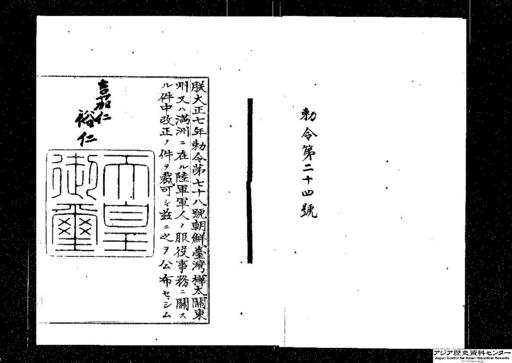 勅令第二十四號
朕大正七年勅令第七十八號朝鮮、臺灣、樺太、關東
州又ハ滿洲ニ在ル陸軍軍人ノ服役事務ニ關ス
ル件中改正ノ件ヲ裁可シ玆ニ之ヲ公布セシム
嘉仁
裕仁
天皇
御璽
アジア歴史資料センター
Japan Center for Asian Historical Records